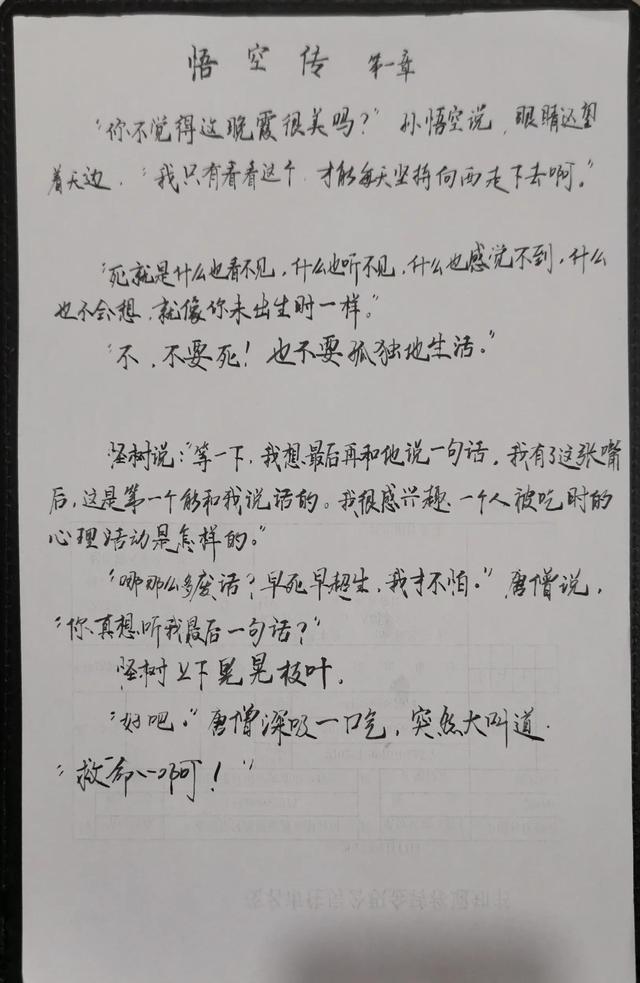 悟空传 第一章
“你不觉得这晚霞很美吗？”孙悟空说，眼睛还望
着天边，“我只有看看这个，才能每天坚持向西走下去啊。”
“死就是什么也看不见，什么也听不见，什么也感觉不到，什么
也不会想，就像你未出生时一样。”
“不，不要死！也不要孤独地生活。”
怪树说：“等一下，我想最后再和他说一句话，我有了这张嘴
后，这是第一个能和我说话的。我很感兴趣一个人被吃时的
心理活动是怎样的。”
“哪那么多废话？早死早超生，我才不怕。”唐僧说，
“你真想听我最后一句话？”
怪树上下晃晃枝叶，
“好吧。”唐僧深吸一口气，突然大叫道.
“救命啊！”